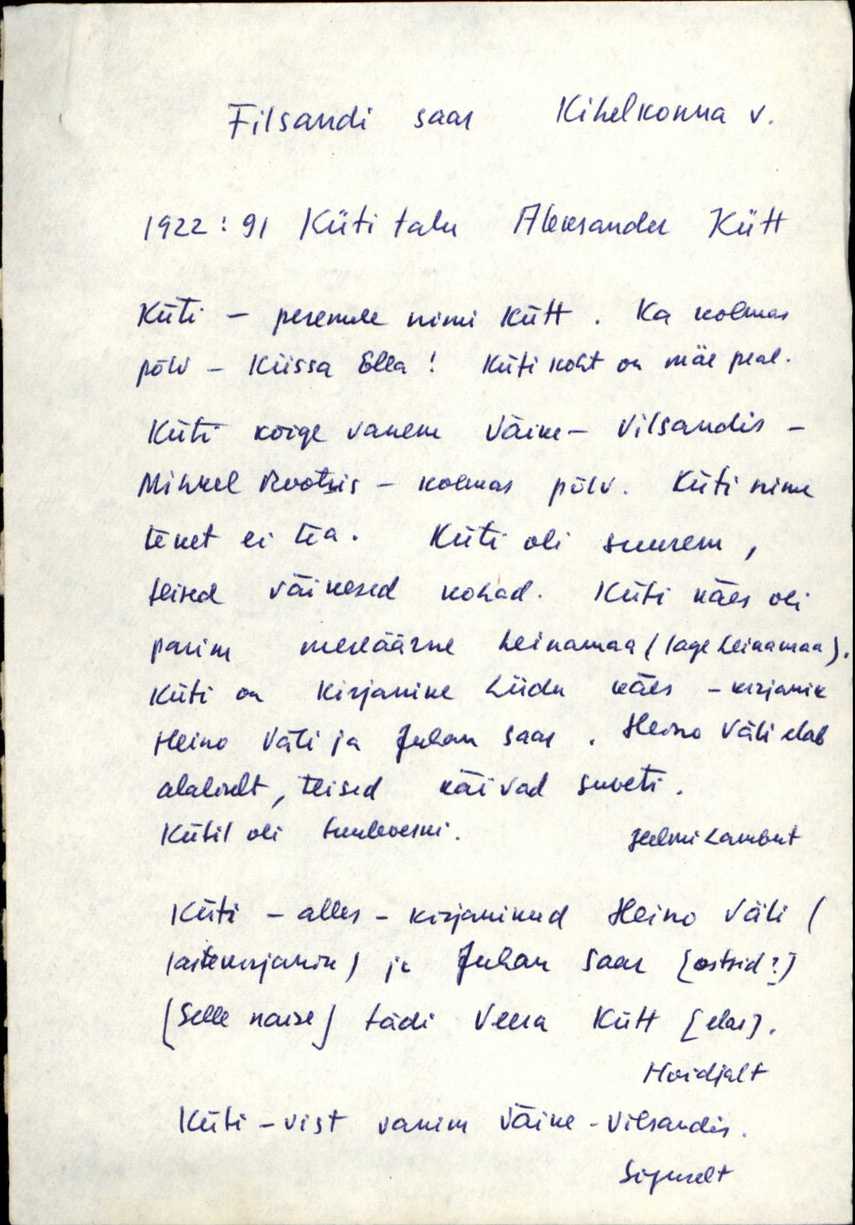 Filsandi saar Kihelkonna v.
1922:91 Küti talu Aleksander Kütt
Küti – peremele nimi Kütt. Ka kolmas
põlv – Küssa Ella! Küti koht on mäe peal.
Küti kõige vanem Väike-Vilsandis –
Mihkel Rootsis – kolmas põlv. Küti nime
teket ei tea. Küti oli suurem,
teised väikesed kohad. Küti käes oli
parim mereäärne heinamaa (lage heinamaa).
Küti on Kirjanike Liidu käes – kirjanik
Heino Väli ja Juhan Saar. Heino Väli elab
alaliselt, teised käivad suveti.
Kütil oli tuuleveski.
Küti – alles – kirjanikud Heino Väli (
lastekirjanik) ja Juhan Saar [ostsid?]
[Selle naise] tädi Veera Kütt [elas].
Hoidjalt
Küti – vist vanim Väike-Vilsandis.